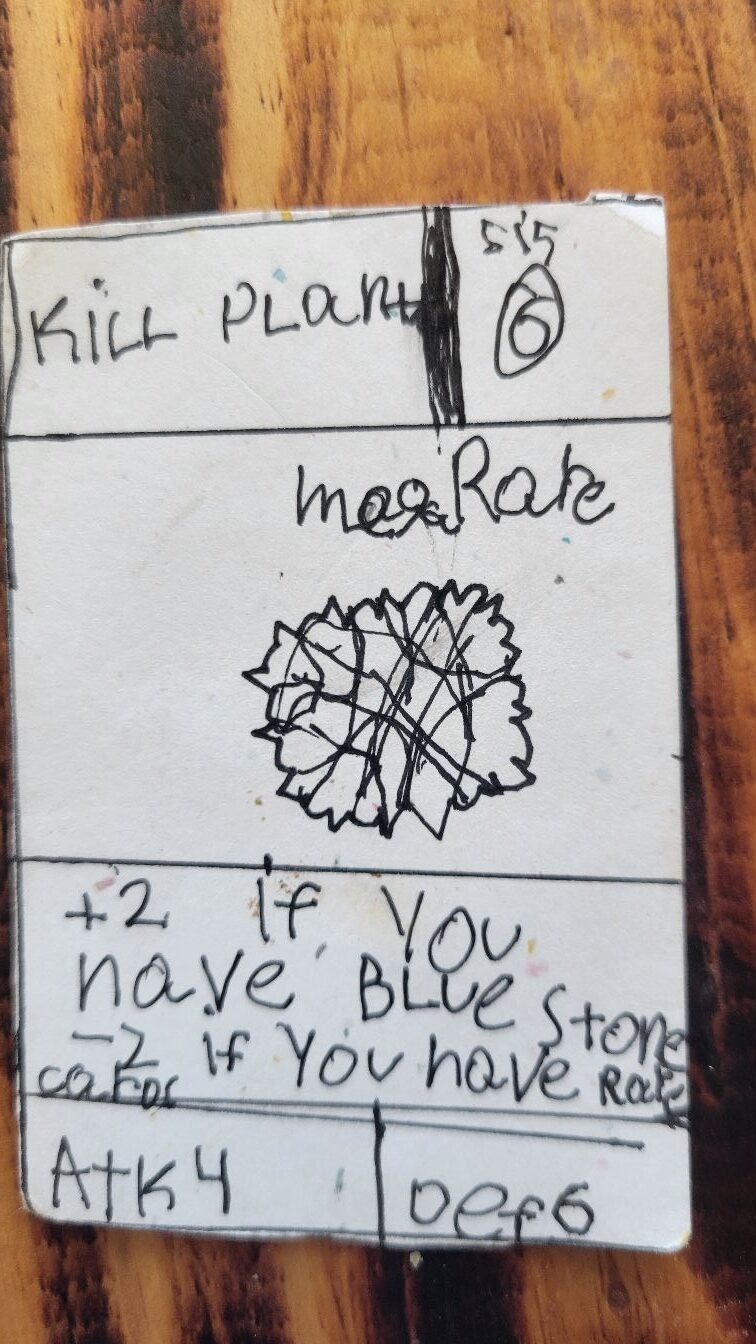 KiLL PLant
5/5
6
mega Rare
+2 If You
have BLUe Stone
-2 If You have Rare
Atk 4
Def 6